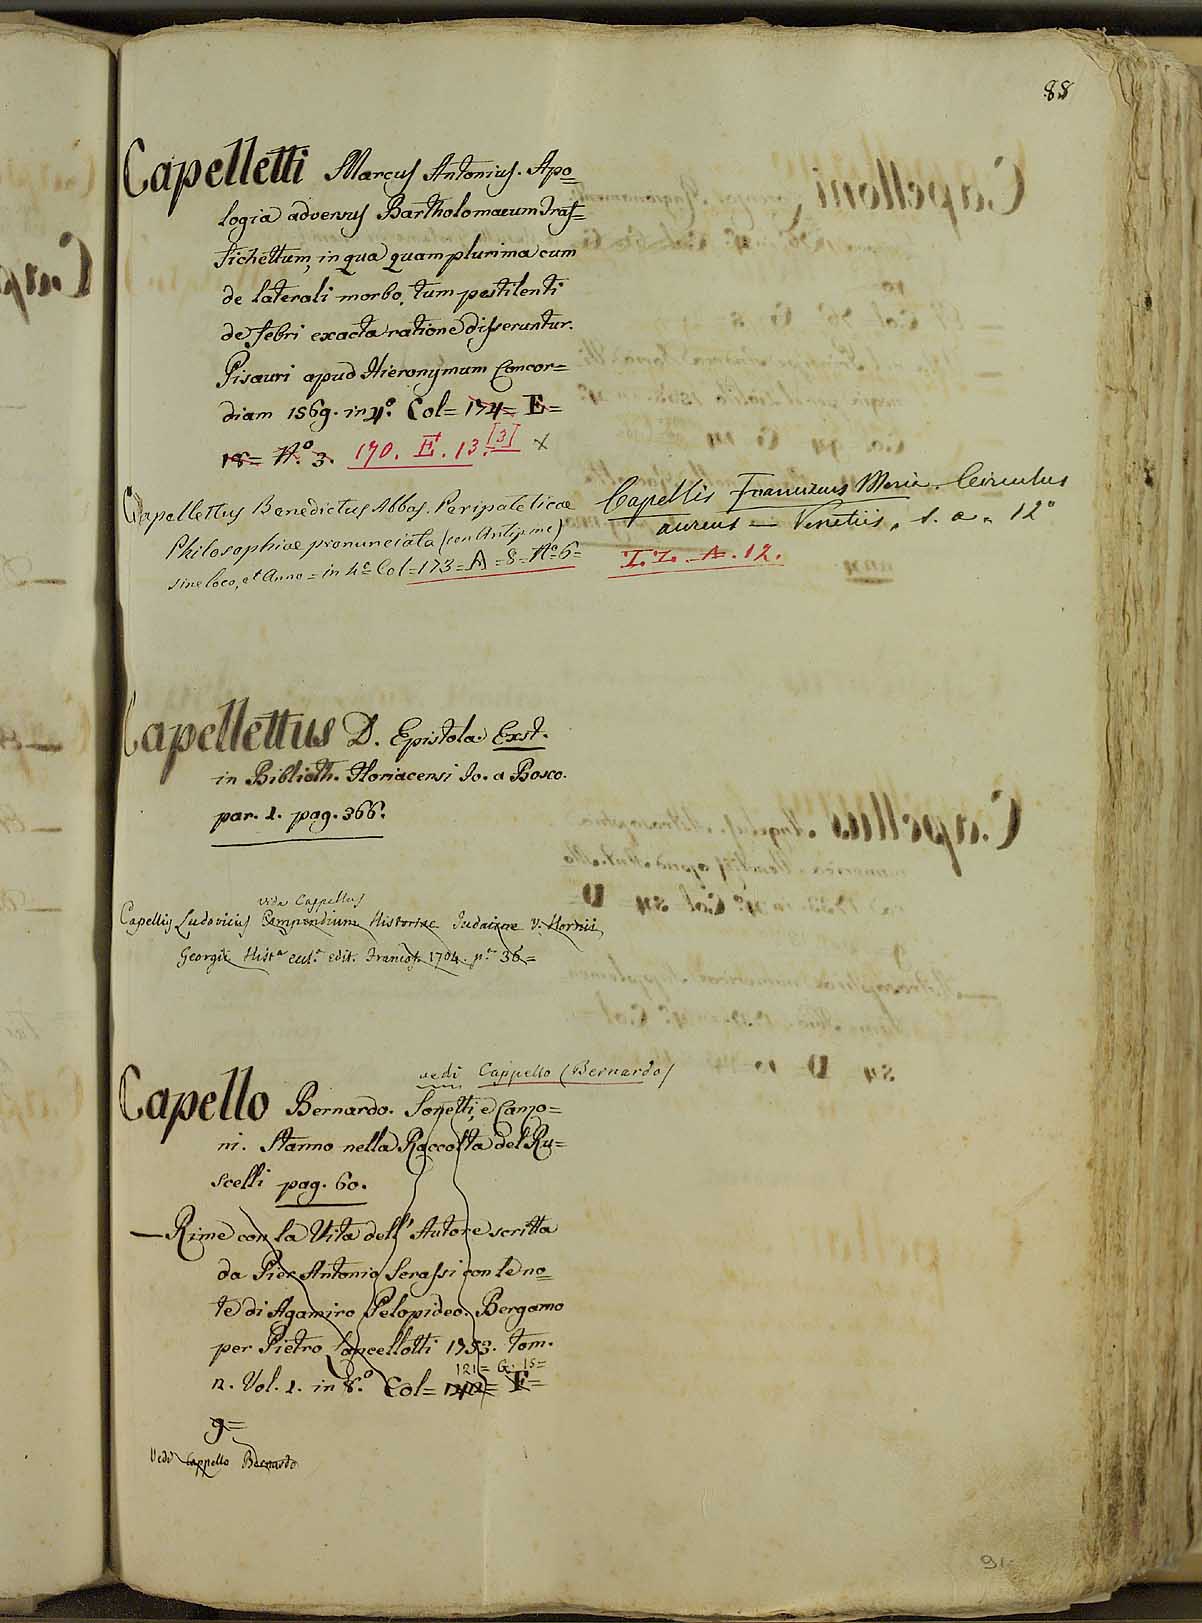 88
Capelletti Marcus Antonius. Apo=
logia adversus Bartholomaeum Traf=
fichettum, in qua quam plurima cum
de laterali morbo, tum pestilenti
de febri exacta ratione disseruntur.
Pisauri apud Hieronymum Concor=
diam 1569. in 4.º Col= 174= E=
18= N.º 3. 170. E. 13.[3] x
Capellettus Benedictus Abbas. Peripateticae
Philosophiae pronunciata (con Antip.me)
sine loco, et Anno = in 4.º Col=173= A =8= Nº 6=
Capellis Franciscus Maria. Circulus
aureus — Venetiis, s. a. 12º
I. I. A. 12.
Capellettus D. Epistola. Exst.
in Biblioth. Floriacensi Jo. a Bosco.
par. 1. pag. 366.
vide Cappellus
Capellis Ludovicus Compendium Historiae Judaicae v. Hornii
Georgii Hist.ª eccl.ª edit. Francof. 1704. p.ª 36=
vedi Cappello (Bernardo)
Capello Bernardo. Sonetti, e Canzo=
ni. Stanno nella Raccolta del Ru=
scelli pag. 60.
— Rime con la Vita dell' Autore scritta
da Pier Antonio Serassi con le no=
te di Agamiro Pelopideo. Bergamo
per Pietro Lancellotti 1753. tom.
2. Vol. 1. in 8.º Col= 121= G. 15= E=
9=
Vedi Cappello Bernardo
91